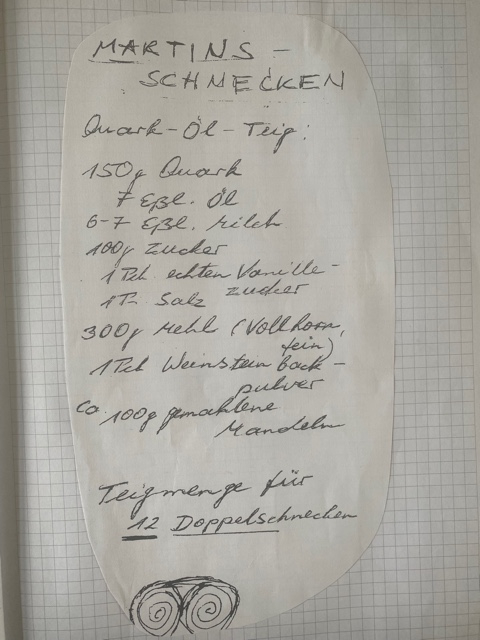 MARTINS -
SCHNECKEN
Quark-Öl-Teig:
150g Quark
7 Eßl. Öl
6-7 Eßl. Milch
100g Zucker
1 Pch echten Vanille-
zucker
1 Pr. Salz
300g Mehl (Vollkorn,
fein)
1 Pch Weinstein back-
pulver
ca. 100g gemahlene
Mandeln
Teigmenge für
12 Doppelschnecken